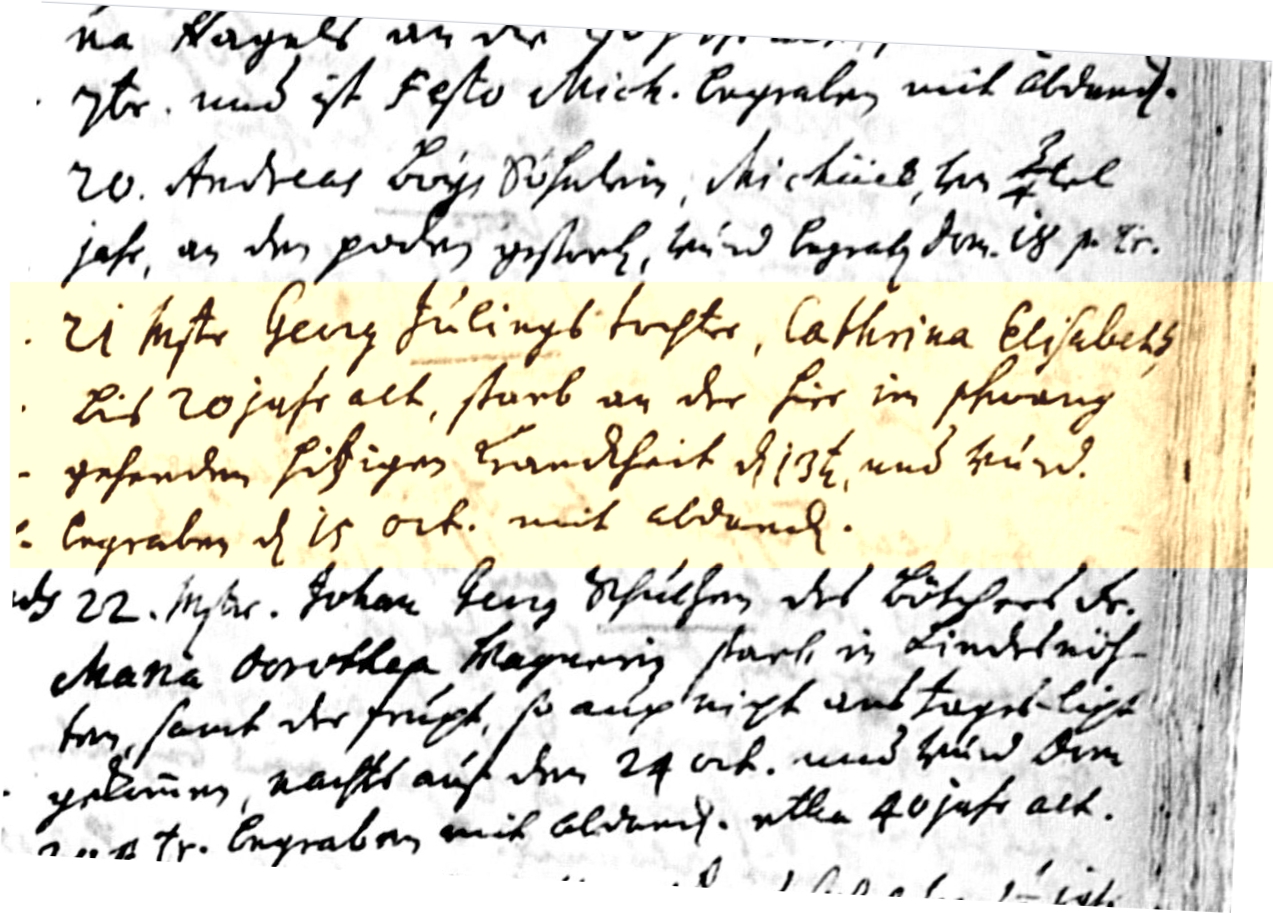 na Hagels an der
7br. und ist Festo Mich. begraben mit abdanck.
20. Andreas Böys Söhnlein, Michäel, von 3/4tel
jahr, an den pocken gestorb, wurd begrab Dom. 18 p. Tr.
21 Mstr Georg Jülings tochter, Cathrina Elisabeth,
bis 20 jahr alt, starb an der hier im schwang
gehenden hitzigen Kranckheit d 13t, und wurd.
begraben d 15 oct. mit abdanck.
22. Mstr. Johan Georg Schultzen des Bötchers Fr.
Maria Dorothea Wagnerin starb in Kindesnöh-
ten, samt der frucht, so auch nicht ans tages-licht
gekom̄en, nachts auf den 24 oct. und wurd Dom
p Tr. begraben mit abdanck. etwa 40 jahr alt.